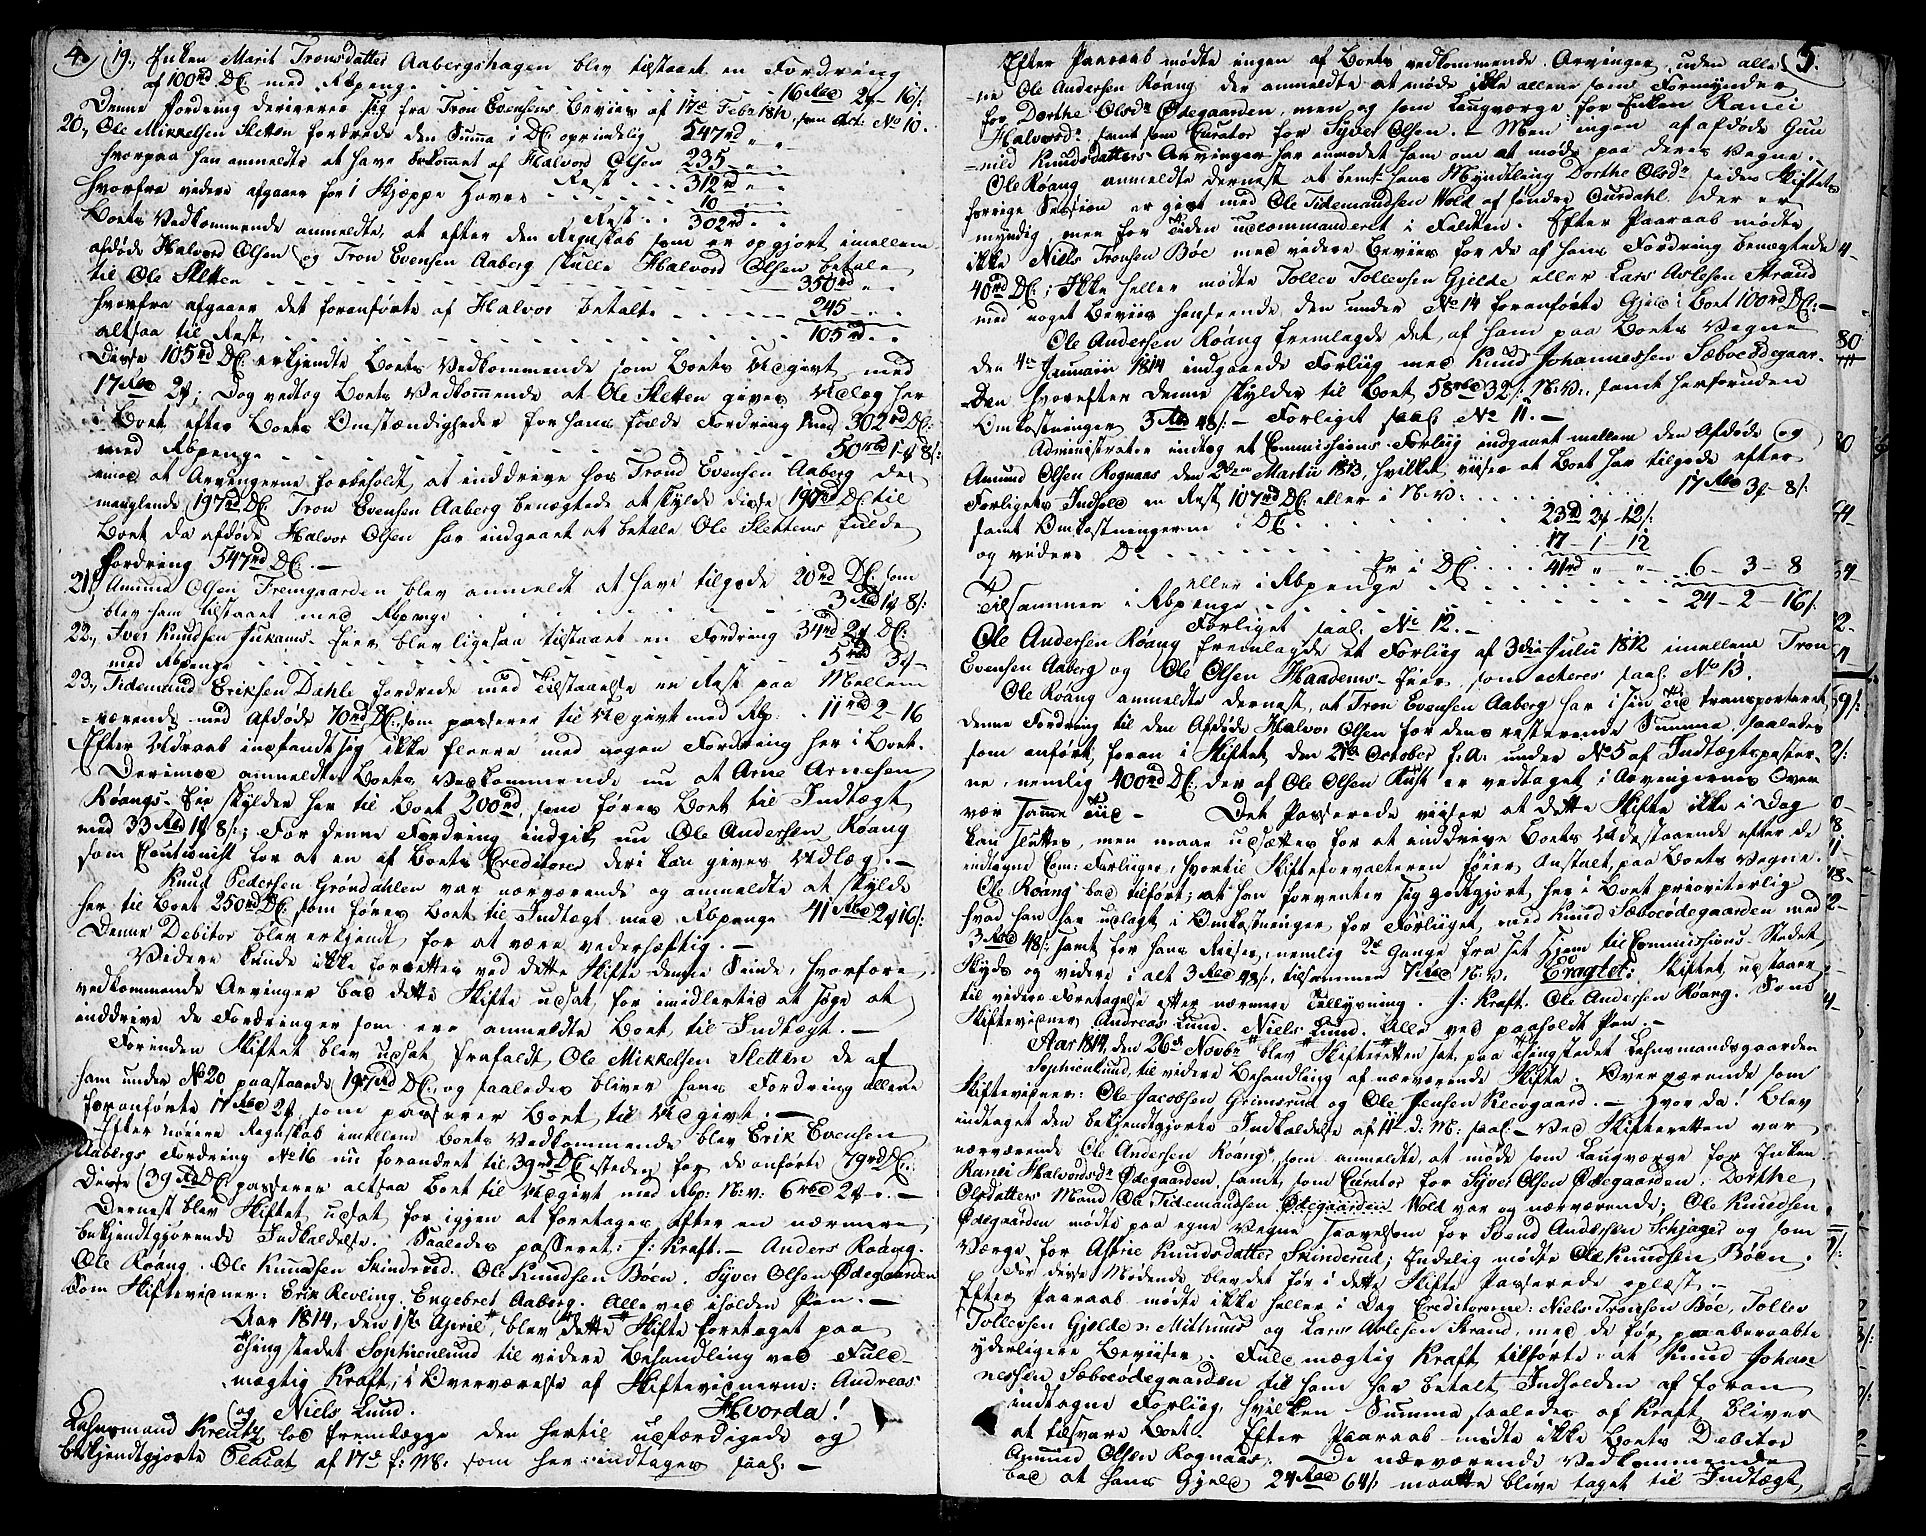 4.
19., Enken Marit Tronsdatter Aabergshagen blev tilstaaet en Fordring
af 100rd DC: med Rbpenge . . . 16 Rbd 2 16/:
Denne Fordring deriverer sig fra Tron Evensens Beviis af 17de Febr 1812, som Act: No 10.
20., Ole Mikkelsen Sletten fordrede den Summa i DC oprindelig 547rd " "
hvorpaa han anmeldte at have bekommet af Halvord Olsen 235 - " "
Rest . . . 312rd " "
hvorfra videre afgaaer for 1 Skjeppe Havre . . . 10
Rest . . 302rd " "
Boets Vedkommende anmeldte, at efter den Regnskab som er opgjort imellem
afdøde Halvord Olsen og Tron Evensen Aaberg skulle Halvord Olsen betale
til Ole Sletten . . . 350rd " "
hvorfra afgaaer det foranførte af Halvor betalte . . . 245 . .
altsaa til Rest . . . 105rd . .
Disse 105rd DC: erkjendte Boets Vedkommende som Boets Udgivt med
17 Rbd 2; Dog vedtog Boets Vedkommende at Ole Sletten gives Udlæg her
i Boet efter Boets Omstændigheder for hans fulde Fordring med 302rd DC:
med Rbpenge . . . 50rbd 1 8/:
imod at Arvingerne forbeholdt, at inddrive hos Trond Evensen Aaberg det
manglende 197rd DC. Tron Evensen Aaberg benægtede at skylde disse 197rd DC til
Boet da afdøde Halvor Olsen har indgaaet at betale Ole Slettens fulde
Fordring 547rd DC. -
21., Amund Olsen Fremgaarden blev anmeldt at have tilgode 20rd DC: som
blev ham tilstaaet med Rbpenge . . . 3 Rbd 1 8/:
22., Iver Knudsen Jukams-Eier blev ligesaa tilstaaet en Fordring 34rd 2 DC:
med Rbpenge . . . 5rbd 3 -
23., Tidemand Eriksen Dahle fordrede med Tilstaaelse en Rest paa Mellem
=værende med Afdøde 70rd DC: som passerer til Udgivt med Rbp. . 11rd 2 - 16
Efter Udraab indfandt sig ikke fleere med nogen Fordring her i Boet.
Derimod anmeldte Boets Vedkommende nu at Arne Arnesen
Røangs-Eie skylder her til Boet 200rd, som føres Boet til Indtægt
med 33 Rbd 1 8/:; For denne Fordring indgik nu Ole Andersen Røang
som Cautionist for at en af Boets Creditorer deri kan gives Udlæg. -
Knud Pedersen Grøndahlen var nærværende og anmeldte at skylde
her til Boet 250rd DC: som føres Boet til Indtægt med Rbpenge 41 Rbd 2 16/:
Denne Debitor blev erkjendt for at være vederhæftig. -
Videre kunde ikke foretages ved dette Skifte denne Sinde, hvorfore
vedkommende Arvinger bad dette Skifte udsat, for imidlertid at søge at
inddrive de Fordringer som ere anmeldte Boet til Indtægt. -
Forinden Skiftet blev udsat, frafaldt Ole Mikkelsen Sletten de af
ham under No 20 paastaaede 197rd DC. og saaledes bliver hans Fordring allene
foranførte 17 Rbd 2, som passerer Boet til Udgivt. -
Efter nøiere Regnskab imellem Boets Vedkommende blev Erik Evensen
Aabergs Fordring No 16 nu forandret til 39rd DC isteden for de anførte 79rd DC.
Disse 39 Rd DC passerer altsaa Boet til Udgivt med Rbp: N:v: 6rbd 2 " . -
Dernest blev Skiftet udsat for igjen at foretages efter en nærmere
bekjendtgjørende Indkaldelse. Saaledes passeret: J: Kraft. - Anders Røang.
Ole Røang. Ole Knudsen Skindrud. Ole Knudsen Bøen. Syver Olsen Ødegaarden
Som Skiftevidner: Erik Revling. Engebret Aaberg. Alle ved iholden Pen. -
Aar 1814, den 1ste April, blev dette Skifte foretaget paa
Thingstedet Sophienlund til videre Behandling ved Fuld-
mægtig Kraft, i Overværelse af Skiftevidnerne: Andreas
og Niels Lund. Hvorda!
Lehnsmand Kreutz lod fremlægge den hertil udfærdigede og
bekjendtgjorte Placat af 17de f: M: som her indtages saal: -
5.
Efter Paaraab mødte ingen af Boets vedkommende Arvinger, uden alle
=ne Ole Andersen Røang der anmeldte at møde ikke allene som Formynder
for Dorthe Olsdr Ødegaarden, men og som Laugværge for Enken Ranei
Halvordsdr samt som Curator for Syver Olsen. - Men ingen af afdøde Gun
=nild Knudsdatters Arvinger har anmodet ham om at møde paa deres Vegne. -
Ole Røang anmeldte dernest at bemte hans Myndtling Dorthe Olsdr siden Skiftets
forrige Session er givt med Ole Tidemandsen Wold af søndre Aurdahl der er
myndig, men for Tiden udcommanderet i Felten. Efter Paaraab mødte
ikke Niels Tronsen Bøe med videre Beviis for de af hans Fordring benægtede
40rd DC; Ikke heller mødte Tollev Tollevsen Gjelde eller Lars Arlesen Strand
med noget Beviis henseende den under No 14 foranførte Gjeld i Boet 100rd DC: -
Ole Andersen Røang fremlagde det af ham paa Boets Vegne
den 4de Januarii 1814 indgaaede Forliig med Knud Johannessen Sæboeødegaar-
den hvorefter denne skylder til Boet 58rbd 32/: N:V:, samt herforuden
Omkostninger 3 Rbd 48/: - Forliget saal: No 11. -
Administrator indtog et Commissions-Forliig indgaaet mellem den Afdøde og
Amund Olsen Rognaas den 2den Martii 1813, hvilket viiser at Boet har tilgode efter
Forligets Indhold en Rest 107rd DC: eller i N:V: . . . 17 Rbd 3 - 8/:
samt Omkostningerne i DC. . . . 23rd 2 - 12/:
og videre Do . . . 17 - 1 - 12
Er i DC. . . . 41rd " - " -
eller i Rbpenge . . . 6 - 3 - 8
Tilsammen i Rbpenge . . . 24 - 2 - 16/:
Forliget saal: No 12. -
Ole Andersen Røang fremlagde et Forliig af 3die Julii 1812 imellem Tron
Evensen Aaberg og Ole Olsen Haadems-Eier, som acteres saal: No 13.
Ole Røang anmeldte dernest, at Tron Evensen Aaberg har i sin Tid transporteret
denne Fordring til den Afdøde Halvor Olsen for dens resterende Summa, saaledes
som anført foran i Skiftet, den 21de October f: A: under No 5 af Indtægtsposter-
ne, nemlig 400rd DC, der af Ole Olsen Kust er vedtaget i Arvingernes Over
vær samme Tiid - Det Passerede viiser at dette Skifte ikke i Dag
kan sluttes, men maae udsættes for at inddrive Boets Udestaaende efter de
indtagne Com: Forliger, hvortil Skifteforvalteren føier Anstalt paa Boets Vegne.
Ole Røang bad tilført; at han forventer sig godtgjort her i Boet prioriterlig
hvad han har udlagt i Omkostninger for Forliiget med Knud Sæboeødegaarden med
3 Rbd 48/: samt for hans Reiser, nemlig 2de Gange fra sit Hjem til Commissions-Stedet
Skyds og videre i alt 3 Rbd 48/:, tilsammen 7 Rbd N:V: Eragtet: Skiftet udstaaer
til videre Foretagelse efter nærmere Tillysning. J: Kraft. Ole Andersen Røang. Som
Skiftevidner Andreas Lund. Niels Lund. Alle ved paaholdt Pen. -
Aar 1814, den 26de Novbr blev Skifteretten sat paa Thingstedet Lehnsmandsgaarden
Sophienlund, til videre Behandling af nærværende Skifte. Overværende som
Skiftevidner: Ole Jacobsen Grimsrud og Ole Jensen Klevgaard. - Hvor da! Blev
indtaget den bekjendtgjorte Indkaldelse af 11te d: M: saal: - Ved Skifteretten var
nærværende Ole Andersen Røang, som anmeldte, at møde som Laugværge for Enken
Ranei Halvordsdr Ødegaarden, samt som Curator for Syver Olsen Ødegaarden. Dorthe
Olsdatters Mand Ole Tidemandsen Ødegaarden Wold var og nærværende; Ole Knudsen
Ødegaarden mødte paa egne Vegne saavelsom for Svend Andersen Schjager og som
Værge for Astrie Knudsdatter Skinderud; Endelig mødte Ole Knudsen Bøen.
For disse Mødende blev det før i dette Skifte Passerede oplæst. -
Efter Paaraab mødte ikke heller i Dag Creditorerne: Niels Tronsen Bøe, Tollev
Tollevsen Gjelde og Lars Arlesen Strand, med de før paaberaabte
yderligere Beviser. Fuldmægtig Kraft tilførte at Knud Johan
nessen Sæboeødegaarden til ham har betalt Indholden af foran
indtagne Forliig, hvilken Summa saaledes af Kraft bliver
at tilsvare Boet. Efter Paaraab mødte ikke Boets Debitor
Amund Olsen Rognaas. De nærværende Vedkommende
bad at hans Gjeld 24 Rbd 64/: maatte blive taget til Indtægt